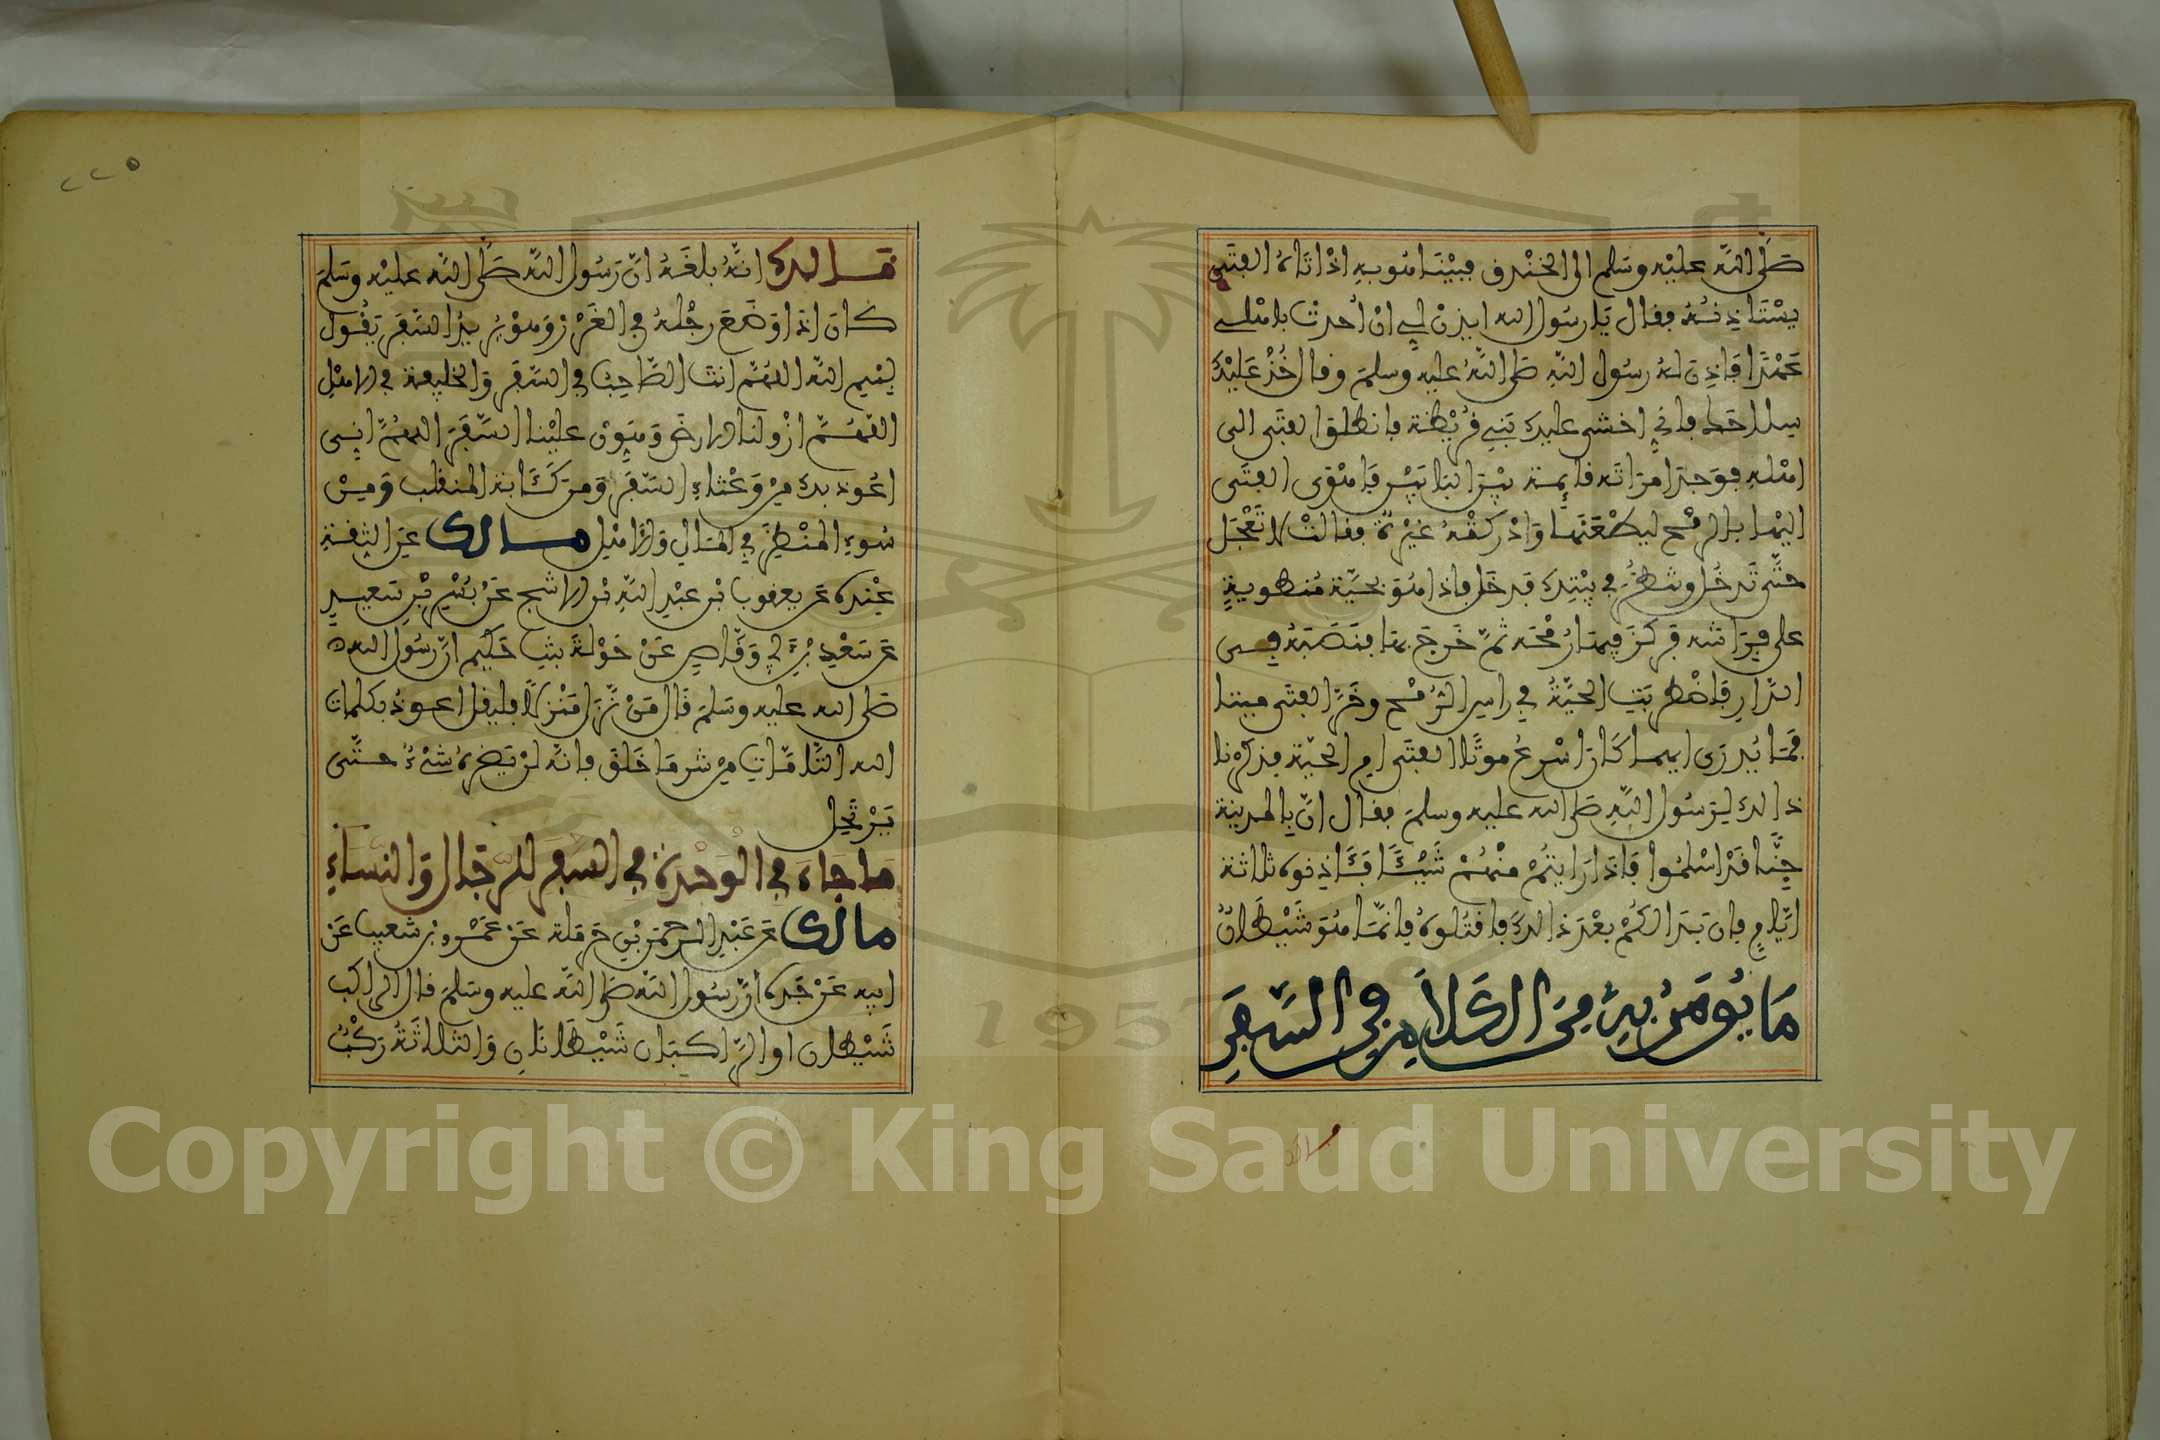 صَلى الله عليْه وسَلم الى الخنْدق فبيْنَا هُوبهِ اذْ اتَاهُ الفتَى
يسْتَاذِنُهُ فقال يَارسُول الله ايذنْ لِى انْ اُحدثَ باهْلى
عَهْدًا فَاذِنَ لهُ رسُول اللهِ صَلى اللهُ عليه وسلمَ وقال خُذْ عَليْكَ
سِلاحَك فانى اخشى عليك بَنِى قُرَيْظة فانطلق الفتَى الى
اهْلهِ فوَجدَ امرَاتَه قائِمة بيْنَ البَابَيْن فَاهْوَى الفتَى
اليْها بالرمْح ليطْعُنَها وَادْركتْهُ غيْرةٌ فقالتْ لا تَعْجَل
حتَّى تَدخُل وتنظُر فى بيْتِك فَدخَل فاذا هُوَ بحيَّة مُنطوية
على فِرَاشه فركزَ فيهَا رُمْحَه ثمَّ خَرجَ بهَا فنصَبَهُ فِى
الدَّارِ فَاضْطربَتِ الحيَّةُ فِى راسِ الرُّمْح وخَرَّ الفتَى ميتا
فَمَا يُدرَى ايهما كَانَ اسْرعُ موتًا الفتَى امِ الحيَّة فذكرْنا
ذالك لِرَسُول اللهِ صَلى الله عليه وسلمَ فقال انَّ بِالمدينة
جِنًّا قَدْ اسْلمُوا فَاذَا رَايتُمْ منْهُمْ شَيْئًا فَئَاذِنوه ثلاثة
ايَّامٍ فان بَدَا لكُمْ بعْدَ ذالكَ فاقتُلوهُ فانمَّا هُوَ شَيْطانٌ
مَا يُومَرُ بِهِ مِنَ الكَلاَمِ فى السَّفَرِ
مالك
٢٢٥
مالك انَّهُ بلغَهُ انَّ رَسُول اللهِ صَلى الله عليْه وسَلم
كان اذا وَضَعَ رجْلهُ فى الغَرْزِ وَهوَ يُرِيدُ السَّفَرَ يَقُول
بِسْمِ الله اللهُمَّ انتَ الصَّاحِبُ فى السَّفَرِ وَالخليفة فى الاهْلِ
اللهُمَّ ازْو لنا الارضَ وَهَوِّنْ عليْنا السَّفَرَ اللهمَّ انِى
اعُوذ بك مِنْ وَعْثاءِ السَّفَرِ وَمِن كَئَابة المنقلب وَمِنْ
سُوءِ المنْظَرِ فِى المَالِ وَالاهْلِ مالك عَنِ الثِقةِ
عِنْده عَن يعقوب بْن عبْدِ اللهِ بْن الاشج عَنْ بُسْرِ بْنِ سَعيدٍ
عَن سَعْدِ بْنِ أَبِى وَقَّاصٍ عَنْ خَوْلةَ بنتِ حَكيم انَّ رسُول الله
صَلى الله عليه وسَلمَ قال مَنْ نَزَل مَنْزِلاً فليقل اعوذ بكلمات
الله التَّامَّاتِ مِنْ شر مَا خَلقَ فانَّه لنْ يَضرهُ شئٌ حتَّى
يَرْتَحِل
مَا جَاءَ فِى الوَحْدةِ فِى السَّفرِ للرِّجَالِ وَالنِّسَاءِ
مالك عَن عَبْدِ الرحمن بْنِ حَرمَلة عَنْ عَمْرو بْن شعيب عَن
ابيه عَنْ جَده انَّ رسُول اللهِ صَلى الله عليه وسَلمَ قال الراكب
شَيْطان اوالرَّاكبَان شَيْطَانَانِ وَالثلاثَةُ رَكْبٌ